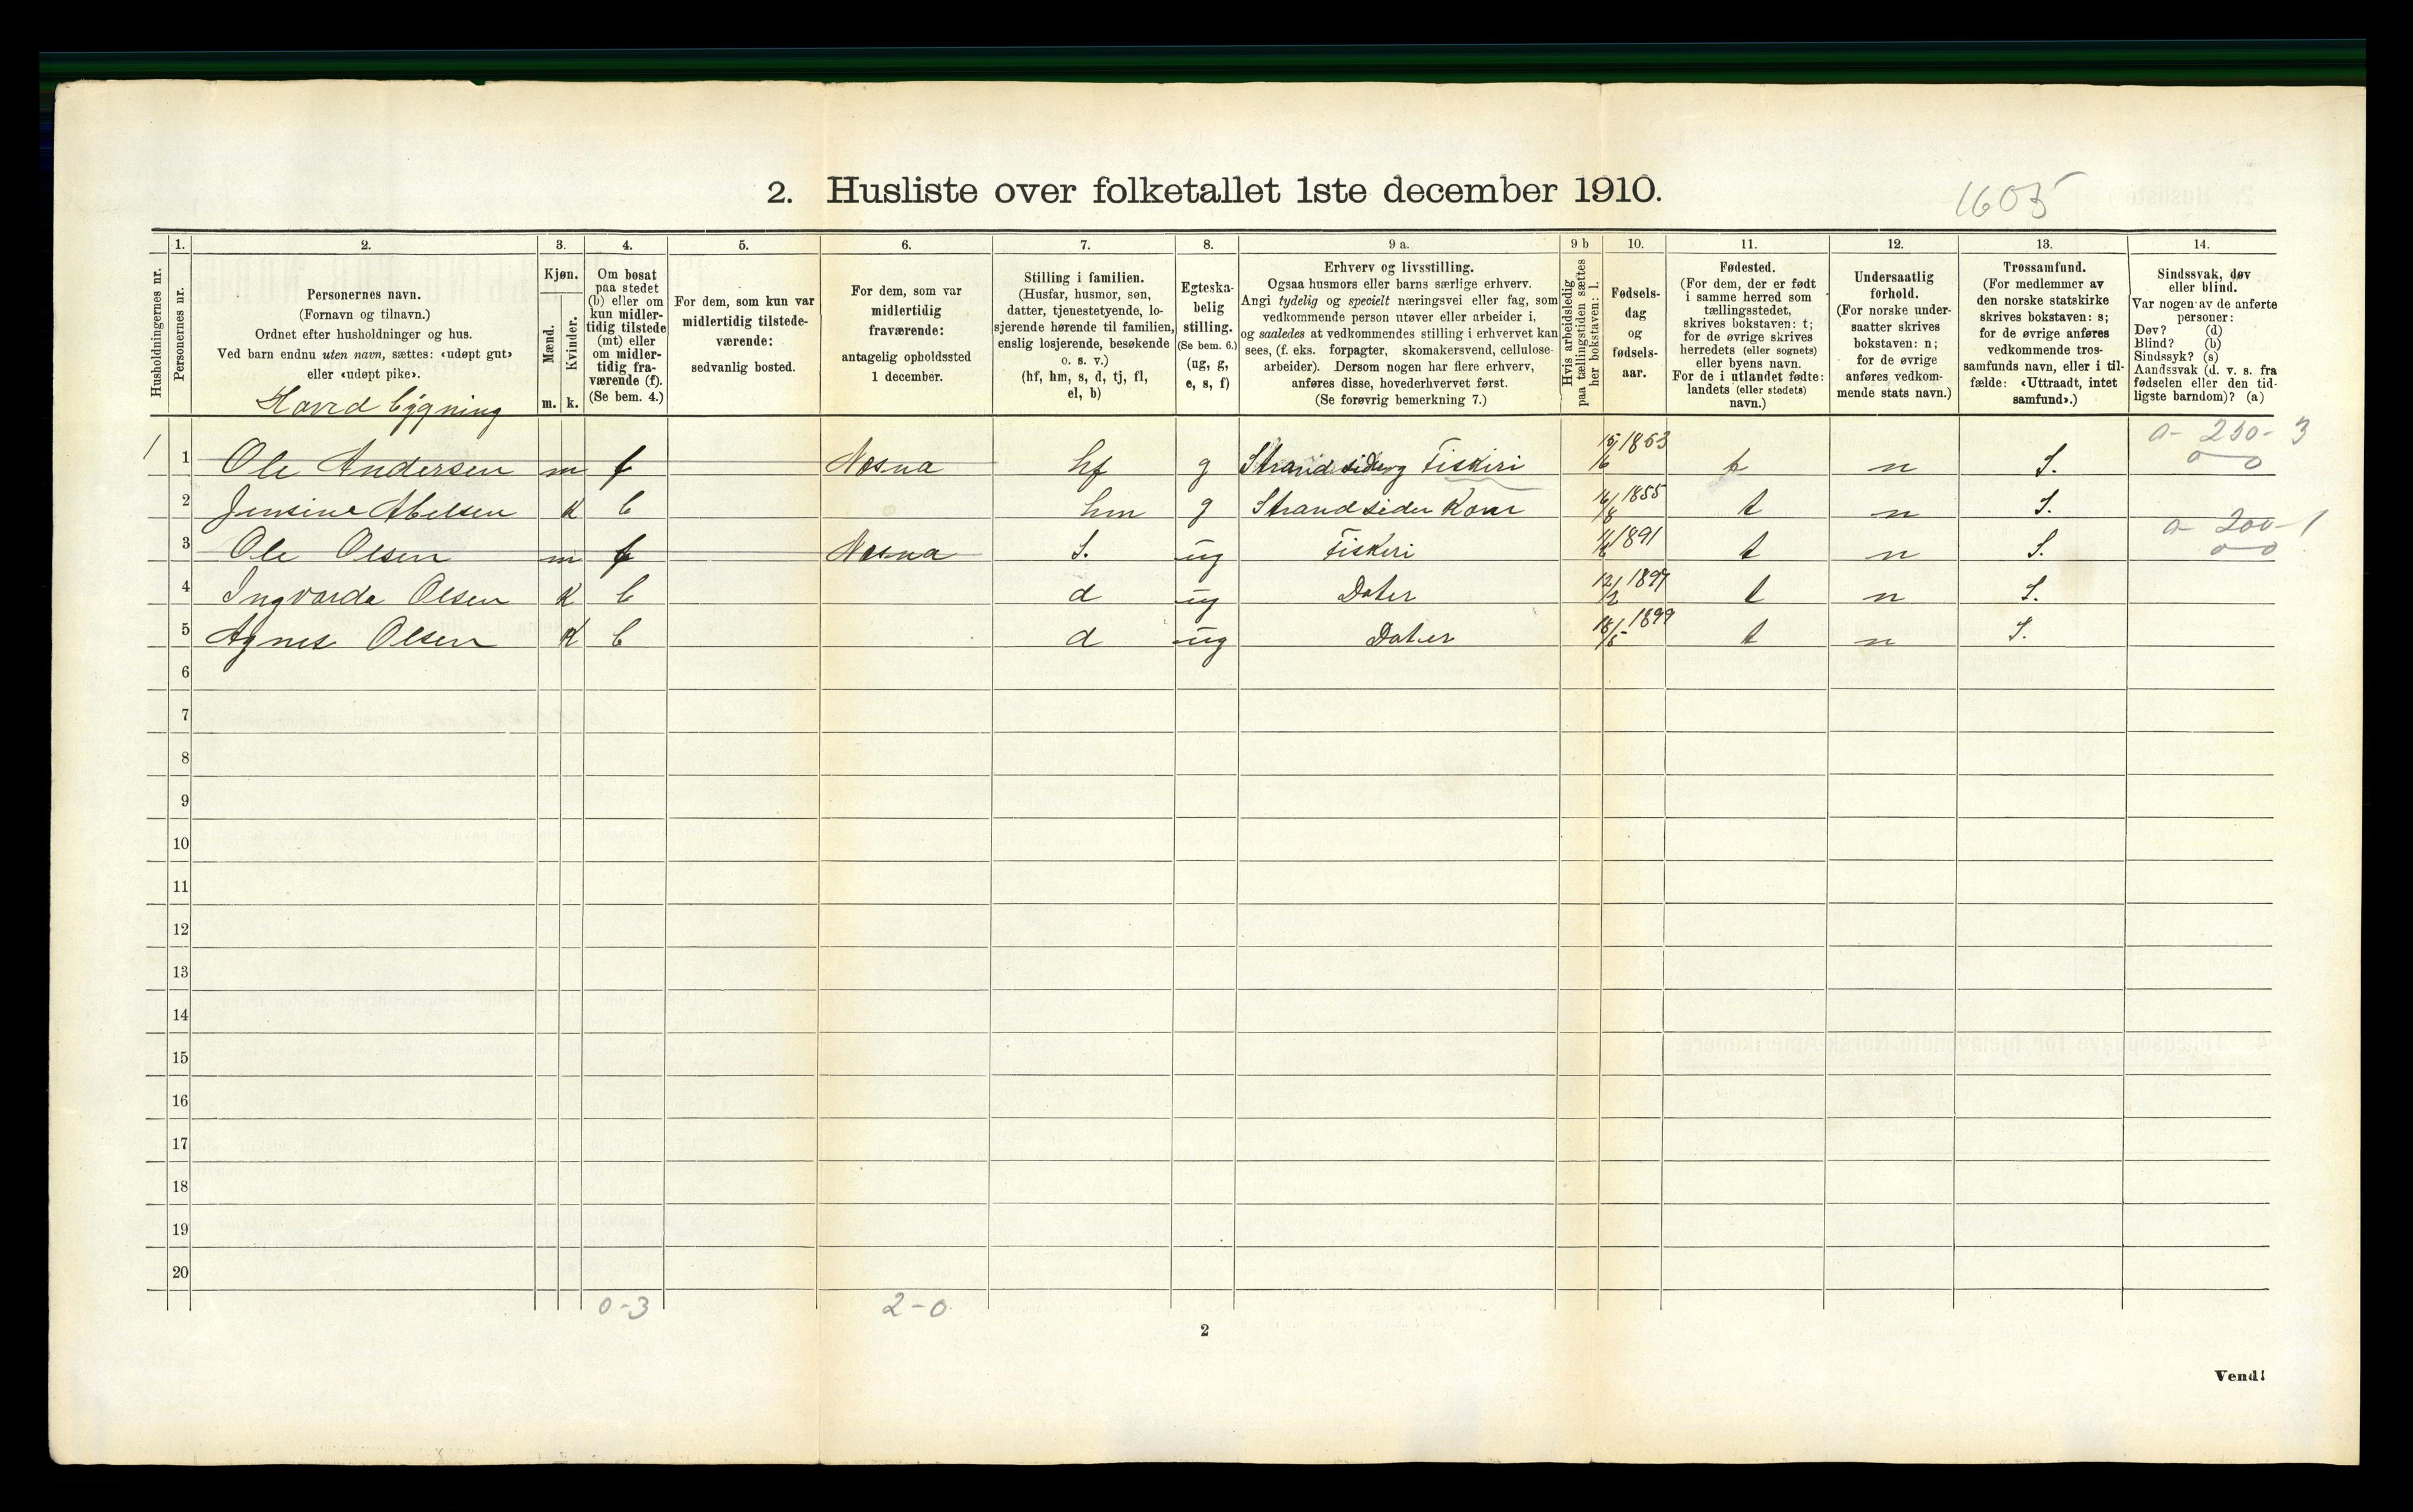 2. Husliste over folketallet 1ste december 1910.
1605
1. 2. 3. 4. 5. 6. 7. 8. 9 a. 9 b 10. 11. 12. 13. 14.
Husholdningernes nr.
Personernes nr.
Personernes navn.
(Fornavn og tilnavn.)
Ordnet efter husholdninger og hus.
Ved barn endnu uten navn, sættes: «udøpt gut»
eller «udøpt pike».
Hovedbygning
Kjøn.
Mænd.
Kvinder.
m. k.
Om bosat
paa stedet
(b) eller om
kun midler-
tidig tilstede
(mt) eller
om midler-
tidig fra-
værende (f).
(Se bem. 4.)
For dem, som kun var
midlertidig tilstede-
værende:
sedvanlig bosted.
For dem, som var
midlertidig
fraværende:
antagelig opholdssted
1 december.
Stilling i familien.
(Husfar, husmor, søn,
datter, tjenestetyende, lo-
sjerende hørende til familien,
enslig losjerende, besøkende
o. s. v.)
(hf, hm, s, d, tj, fl,
el, b)
Egteska-
belig
stilling.
(Se bem. 6.)
(ug, g,
e, s, f)
Erhverv og livsstilling.
Ogsaa husmors eller barns særlige erhverv.
Angi tydelig og specielt næringsvei eller fag, som
vedkommende person utøver eller arbeider i,
og saaledes at vedkommendes stilling i erhvervet kan
sees, (f. eks. forpagter, skomakersvend, cellulose-
arbeider). Dersom nogen har flere erhverv,
anføres disse, hovederhvervet først.
(Se forøvrig bemerkning 7.)
Hvis arbeidsledig
paa tællingstiden sættes
her bokstaven: l.
Fødsels-
dag
og
fødsels-
aar.
Fødested.
(For dem, der er født
i samme herred som
tællingsstedet,
skrives bokstaven: t;
for de øvrige skrives
herredets (eller sognets)
eller byens navn.
For de i utlandet fødte:
landets (eller stedets)
navn.)
Undersaatlig
forhold.
(For norske under-
saatter skrives
bokstaven: n;
for de øvrige
anføres vedkom-
mende stats navn.)
Trossamfund.
(For medlemmer av
den norske statskirke
skrives bokstaven: s;
for de øvrige anføres
vedkommende tros-
samfunds navn, eller i til-
fælde: «Uttraadt, intet
samfund».)
Sindssvak, døv
eller blind.
Var nogen av de anførte
personer:
Døv? (d)
Blind? (b)
Sindssyk? (s)
Aandssvak (d. v. s. fra
fødselen eller den tid-
ligste barndom)? (a)
1 1 Ole Andersen m f Nesna hf g Strandsider og Fiskeri 1853 t n S. 0-250-3 0 0
2 Jensine Abelsen k b hm g Strandsider Kone 16/8 1855 t n S.
3 Ole Olsen m f Nesna S. ug Fiskeri 1891 t n S. 0-200-1 0 0
4 Ingvarda Olsen k b d ug Dater 12/2 1897 t n S.
5 Agnes Olsen k b d ug Dater 18/5 1899 t n S.
6
7
8
9
10
11
12
13
14
15
16
17
18
19
20
0-3 2-0
2
Vend!